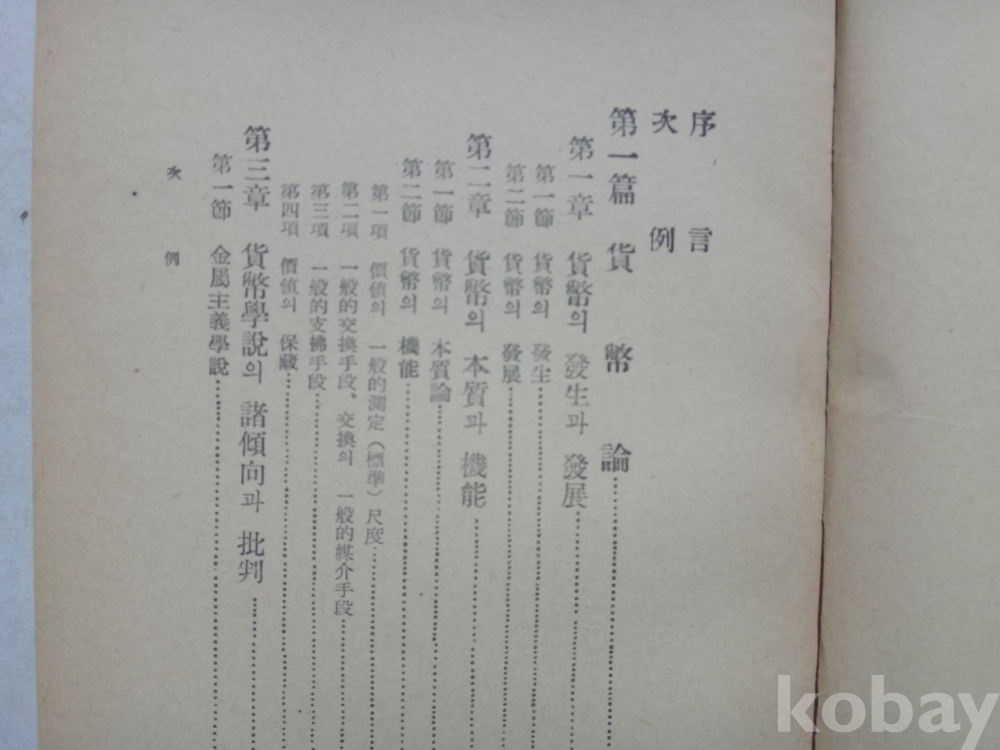 序言
次例
第一篇 貨幣論
第一章 貨幣의 發生과 發展
第一節 貨幣의 發生
第二節 貨幣의 發展
第二章 貨幣의 本質과 機能
第一節 貨幣의 本質論
第二節 貨幣의 機能
第一項 價値의 一般的測定(標準)尺度
第二項 一般的交換手段、交換의 一般的媒介手段
第三項 一般的支拂手段
第四項 價値의 保藏
第三章 貨幣學說의 諸傾向과 批判
第一節 金屬主義學說
次例
kobay